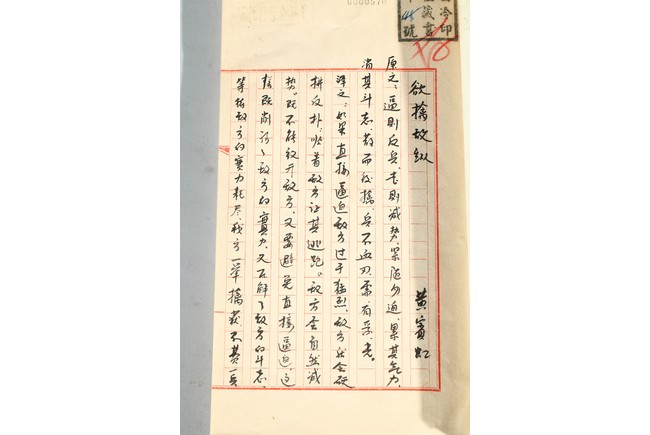 泠印
藏書
號
欲擒故纵 黄宾虹
原文：逼则反兵，走则减势。紧随勿迫，累其气力，
消其斗志，散而后擒，兵不血刃。需，有孚，光。
译文：如果直接逼迫敌方过于猛烈，敌方就会硬
拼反朴，紧着敌方让其逃跑。敌方会自然减
势。既不能放开敌方，又要避免直接逼迫，这
样既削弱了敌方的實力，又瓦解了敌方的斗志，
等待敌方的實力耗尽，我方一举擒获，不费一兵